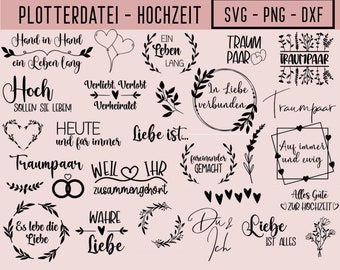 PLOTTERDATEI - HOCHZEIT
SVG - PNG - DXF
Hand in Hand
ein Leben lang
EIN
Leben
LANG
TRAUM
PAAR
TRAUMPAAR
Hoch
SOLLEN SIE LEBEN!
Verliebt, Verlobt
Verheiratet
In Liebe
verbunden
Traumpaar
HEUTE
und für immer
Liebe ist...
Auf immer
und ewig
Traumpaar
WEIL IHR
zusammengehört
füreinander
GEMACHT
Alles Gute
ZUR HOCHZEIT
Es lebe die
Liebe
WAHRE
Liebe
Du &
Ich
Liebe
IST ALLES